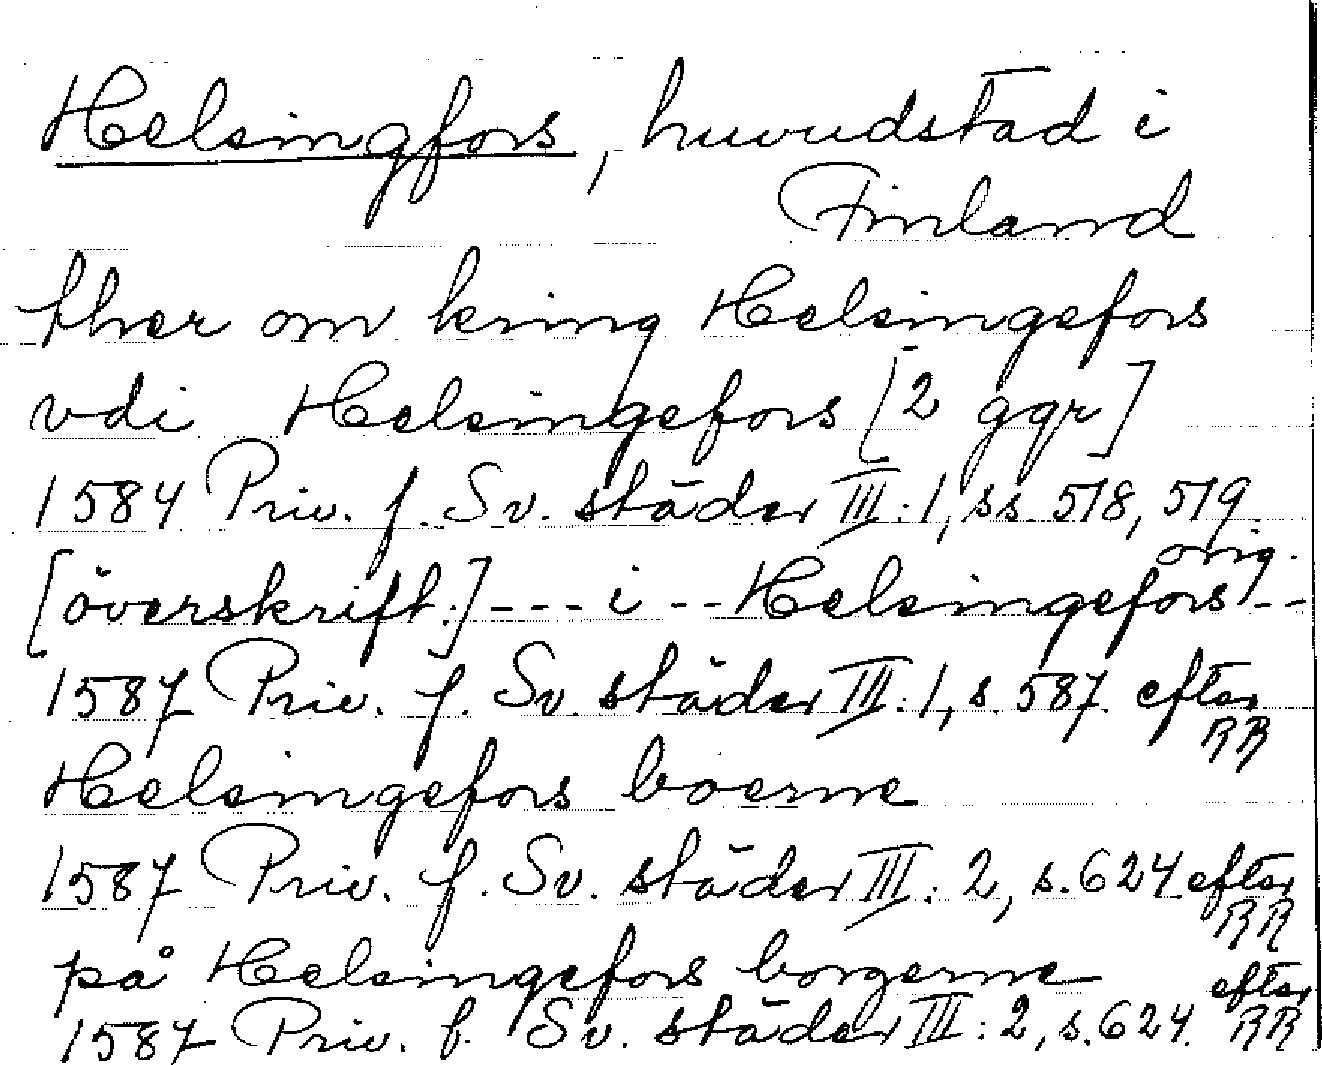 Helsingfors, huvudstad i
Finland
ther om kring Helsingefors
vdi Helsingefors [2 ggr]
1584 Priv. f. Sv. städer III:1, ss. 518, 519.
orig.
[överskrift:] --- i -- Helsingefors --
1587 Priv. f. Sv. städer III:1, s. 587. efter
RR
Helsingefors boerne
1587 Priv. f. Sv. städer III:2, s. 624 efter
RR
på Helsingefors borgerne
1587 Priv. f. Sv. städer III:2, s. 624. efter
RR